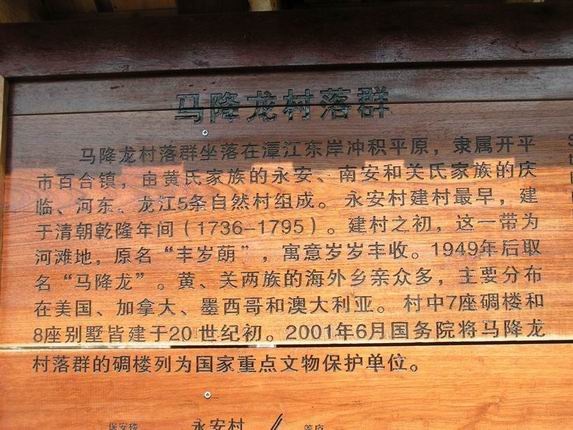 马降龙村落群
马降龙村落群坐落在潭江东岸冲积平原，隶属开平
市百合镇，由黄氏家族的永安、南安和关氏家族的庆
临、河东、龙江5条自然村组成。永安村建村最早，建
于清朝乾隆年间（1736-1795）。建村之初，这一带为
河滩地，原名“丰岁蓢”，寓意岁岁丰收。1949年后取
名“马降龙”。黄、关两族的海外乡亲众多，主要分布
在美国、加拿大、墨西哥和澳大利亚。村中7座碉楼和
8座别墅皆建于20世纪初。2001年6月国务院将马降龙
村落群的碉楼列为国家重点文物保护单位。
保安楼 永安村